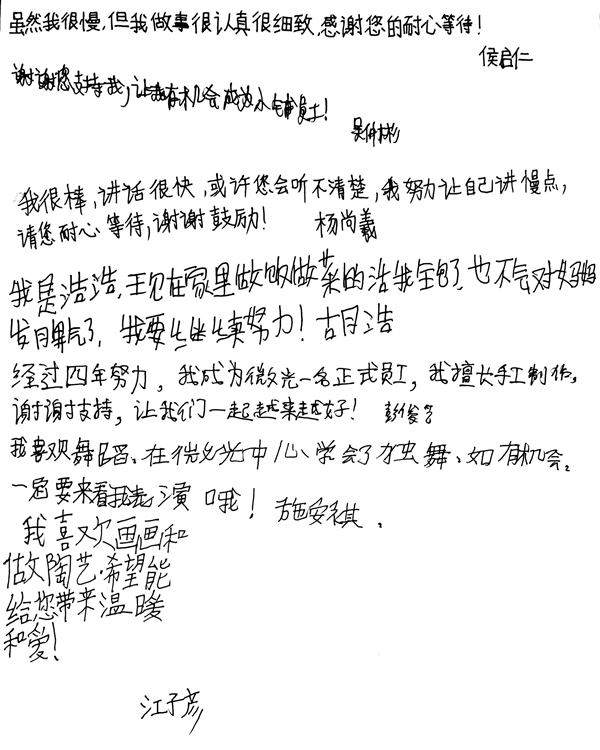 虽然我很慢,但我做事很认真很细致,感谢您的耐心等待!
侯启仁
谢谢您支持我,让我有机会成为小铺员工!
吴仲彬
我很棒,讲话很快,或许您会听不清楚,我努力让自己讲慢点,
请您耐心等待,谢谢鼓励! 杨尚羲
我是浩浩,现在家里做饭做菜的活我全包了,也不会对妈妈
发脾气了,我要继续努力!胡浩
经过四年努力,我成为微光一名正式员工,我擅长手工制作,
谢谢支持,让我们一起越来越好! 彭俊
我喜欢舞蹈、在微光中心、学会了独舞、如有机会。
一定要来看我表演哦! 施安祺.
我喜欢画画和
做陶艺.希望能
给您带来温暖
和爱!
江子彦